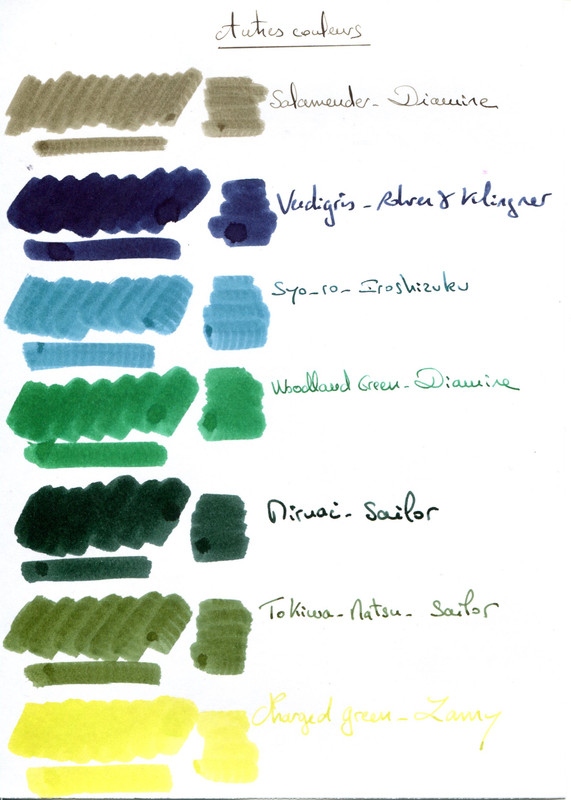 Autres couleurs
Salamender - Diamine
Verdigris - Rohrer & Klingner
Syo-ro - Iroshizuku
Woodland Green - Diamine
Miruai - Sailor
Tokiwa-Matsu - Sailor
Charged green - Lamy